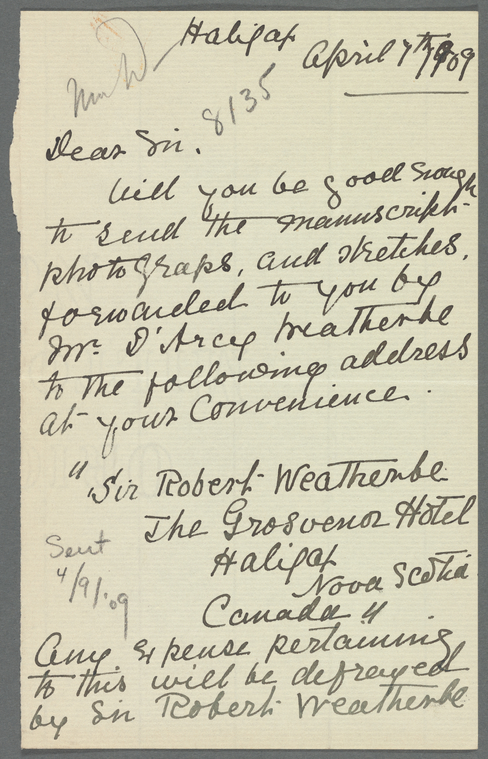 Halifax
April 7th/09
8135
Dear Sir.
Will you be good enough
to send the manuscript-
photograps, and sketches,
forwarded to you by
Mr. D'Arcy Weatherbe
to the following address
at your Convenience.
"Sir Robert Weatherbe
The Grosvenor Hotel
Halifax
Nova Scotia
Canada"
Sent
4/9/.09
Any Expense pertaining
to this will be defrayed
by Sir Robert Weatherbe